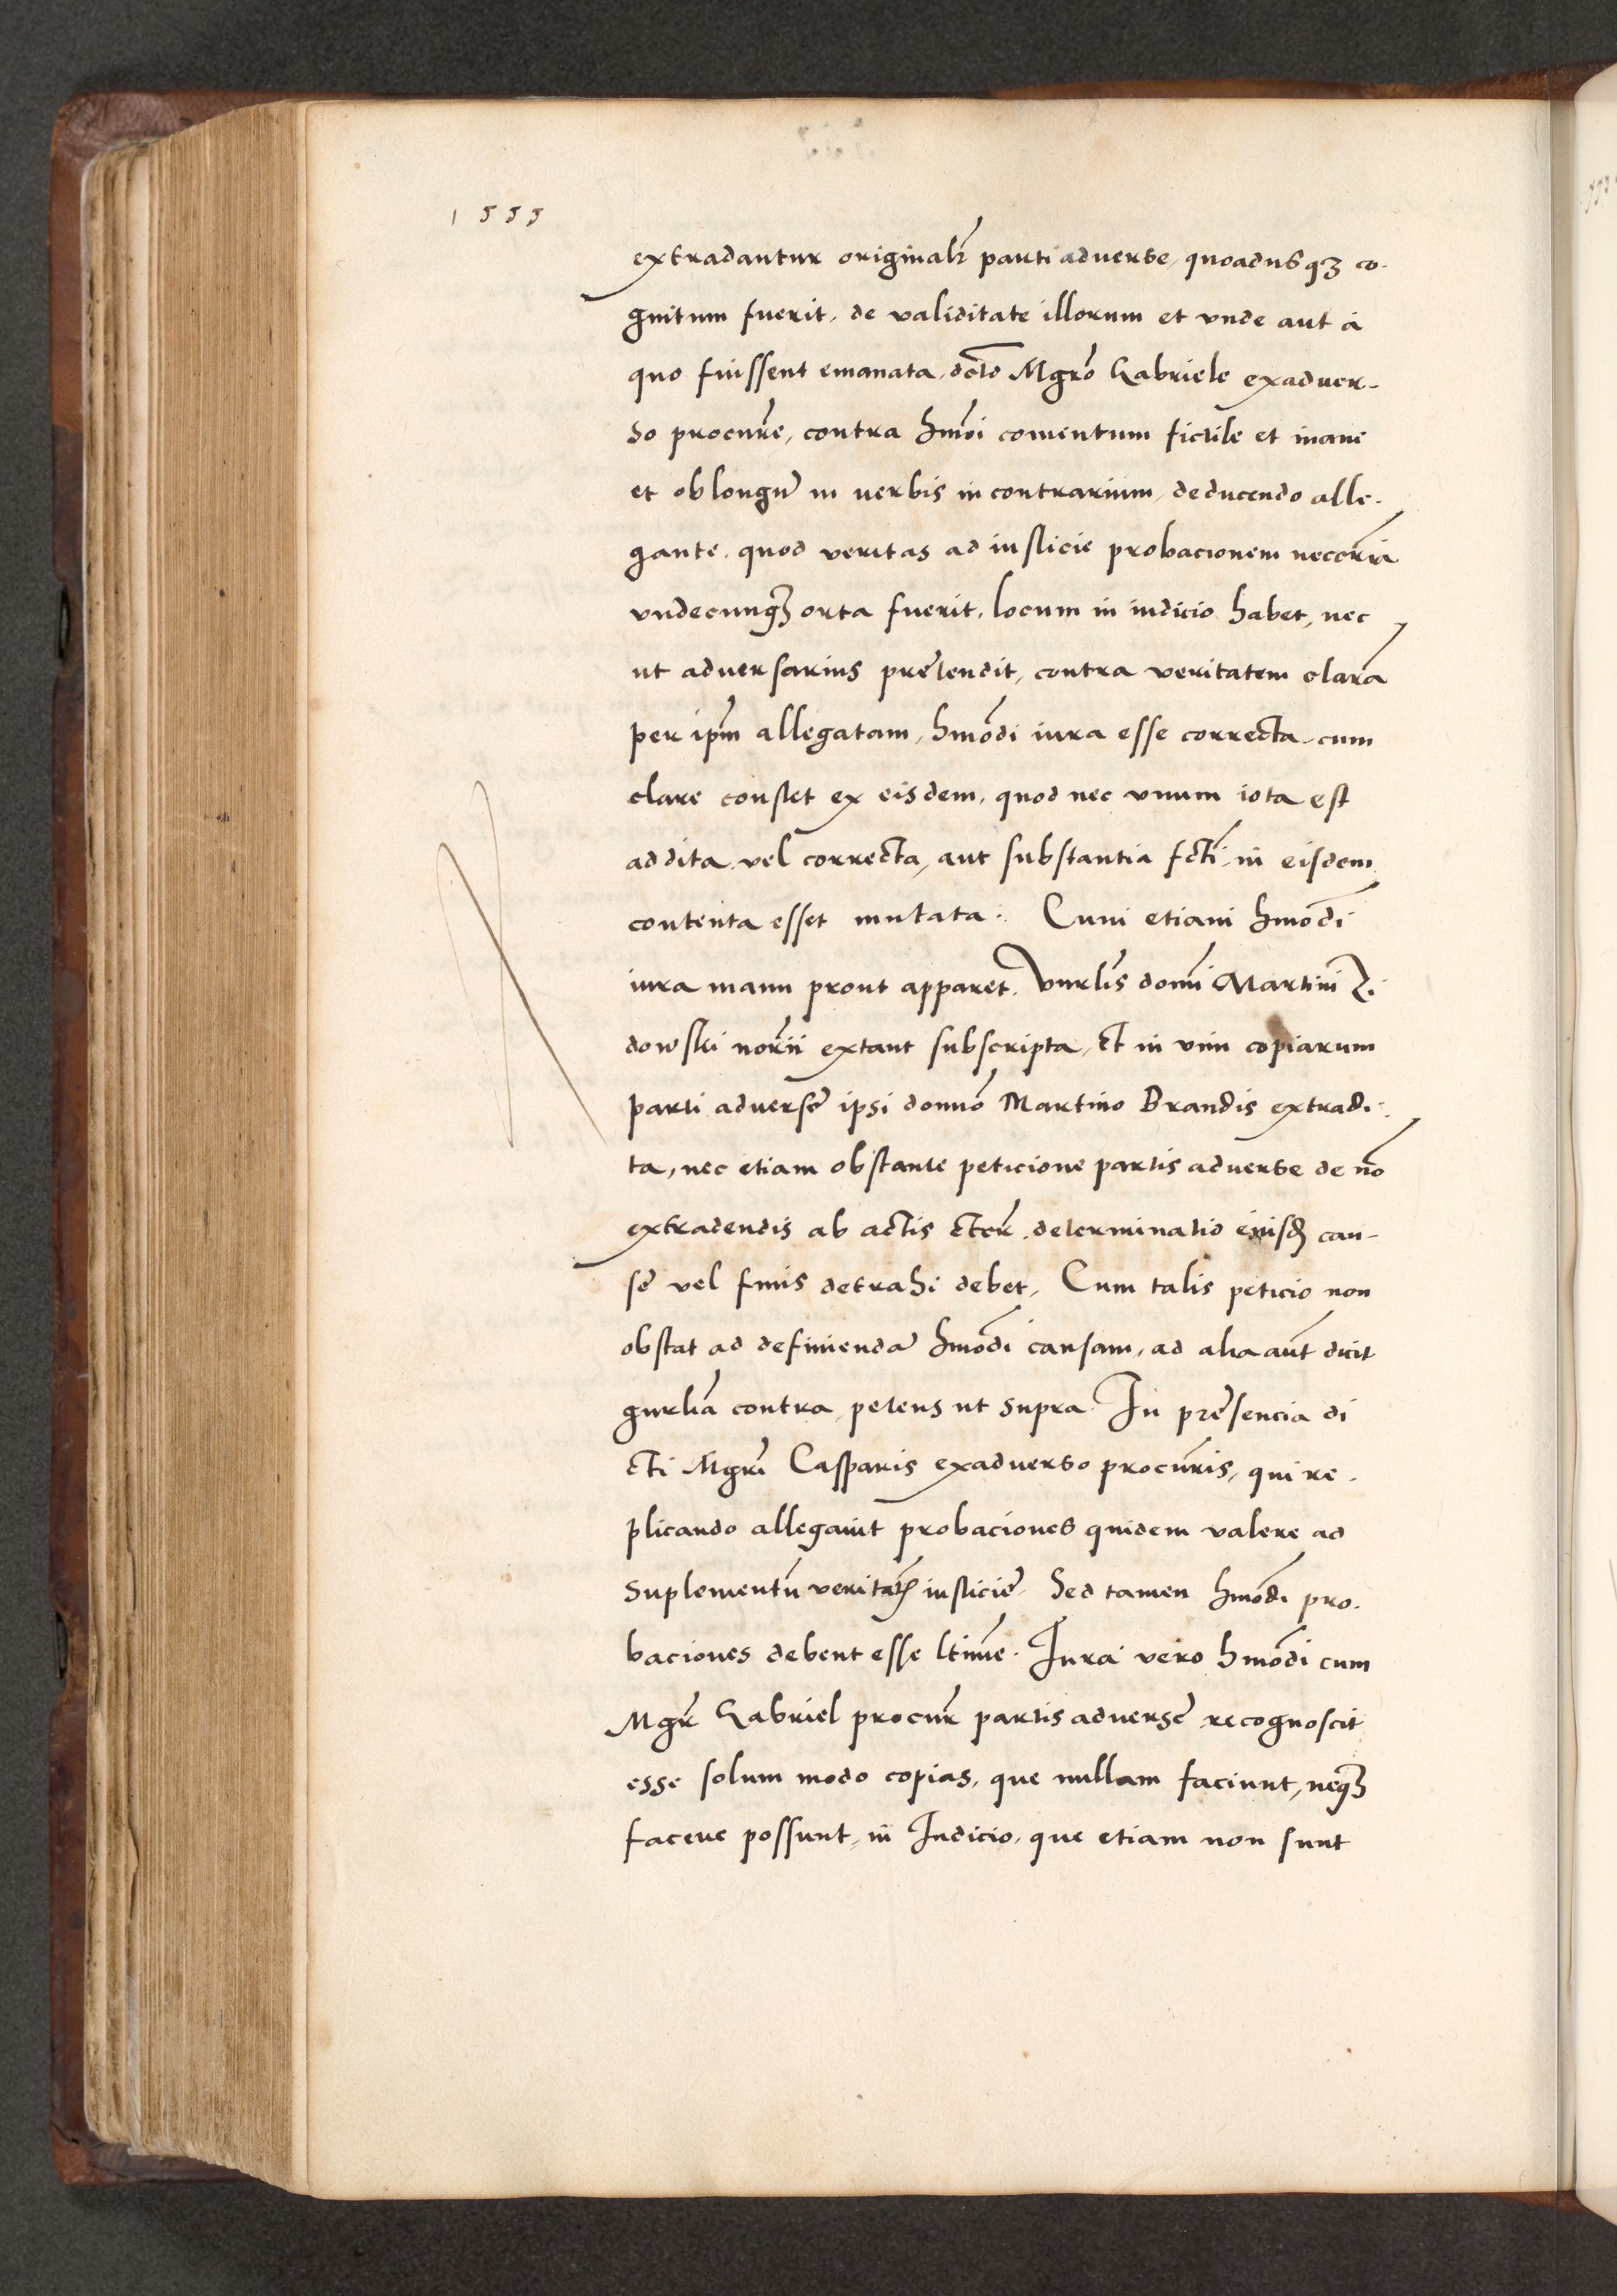 1555
extradantur originalr̃ parti aduerse, quoadusqꝫ co-
gnitum fuerit, de validitate illorum et vnde aut a
quo fuissent emanata, dcto Mgrõ Gabriele exaduer-
so procurẽ, contra hmõi comentum fictile et inane
et oblongũ in uerbis in contrarium, deducendo alle-
gante, quod veritas ad iusticie probacionem neccr̃ia
vndecunqꝫ orta fuerit, locum in iudicio habet, nec
ut aduersarius prẽtendit, contra veritatem clarã
per ipm̃ allegatam, hmõdi iura esse correcta, cum
clare constet ex eisdem, quod nec vnum iota est
addita vel correcta, aut substantia fcti in eisdem
contenta esset mutata. Cum etiam hmõdi
iura manu prout apparet, Vnrl̃is domĩ Martini Zi-
dowski nor̃ii extant subscripta, et in vim copiarum
parti aduersẽ ipsi domño Martino Brandis extradi-
ta, nec etiam obstante peticione partis aduerse de nõ
extradendis ab actis cter̃ determinatio eiusd̃ cau-
sẽ vel finis detrahi debet, Cum talis peticio non
obstat ad definiendã hmõdi causam, ad alia aũt dicit
gñrlia contra petens ut supra. In prẽsencia di
cti Mgrĩ Casparis exaduerso procuñris, qui re-
plicando allegauit probaciones quidem valere ad
suplementũ veritatꝭ iusticiẽ Sed tamen hmõdi pro-
baciones debent esse ltimẽ. Iura vero hmõdi cum
Mgr̃ Gabriel procur̃ partis aduersẽ recognoscit
esse solum modo copias, que nullam faciunt, neqꝫ
facere possunt, in Iudicio, que etiam non sunt